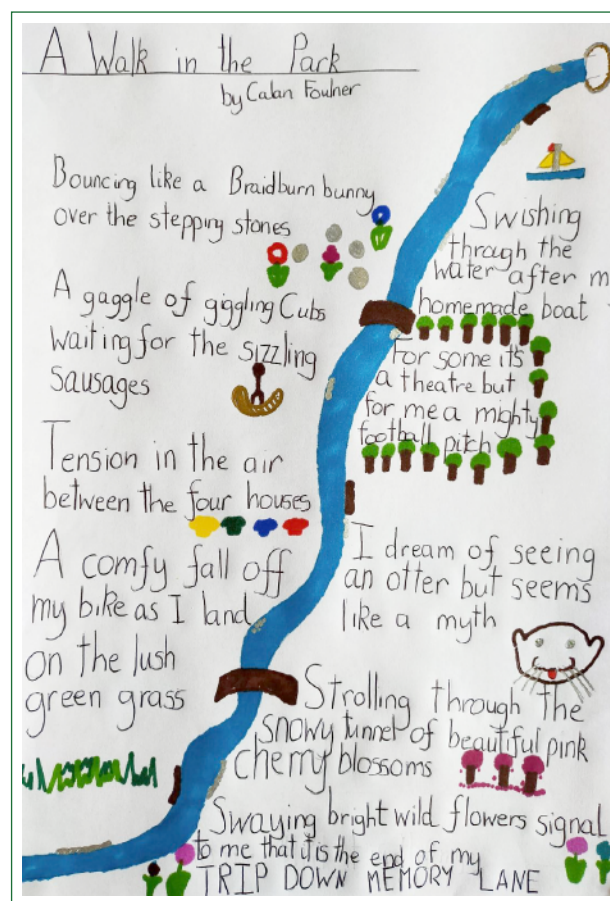 A Walk in the Park
by Calan Foulner
Bouncing like a Braidburn bunny
over the stepping stones
A gaggle of giggling Cubs
waiting for the sizzling
sausages
Tension in the air
between the four houses
A comfy fall off
my bike as I land
on the lush
green grass
Swishing
through the
water after m
homemade boat
For some it's
a theatre but
for me a mighty
football pitch
I dream of seeing
an otter but seems
like a myth
Strolling through the
snowy tunnel of beautiful pink
cherry blossoms
Swaying bright wild flowers signal
to me that it is the end of my
TRIP DOWN MEMORY LANE